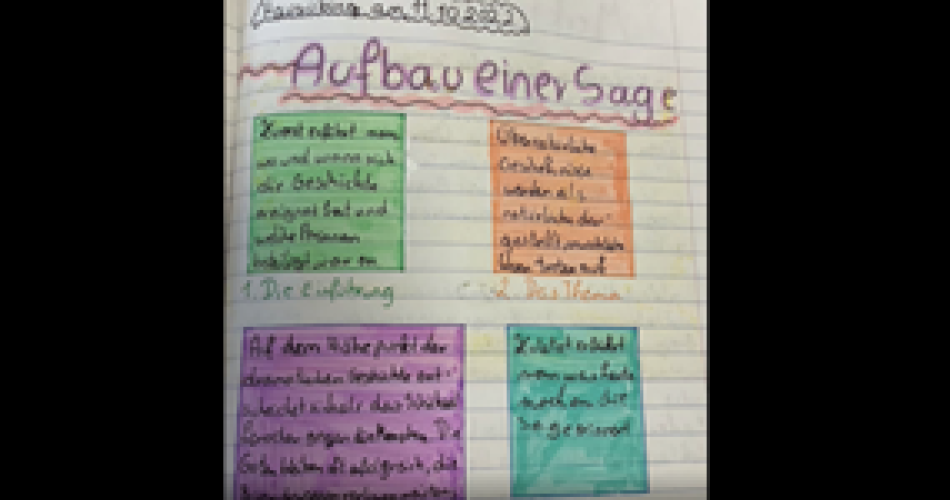 am 11.10.2022
Aufbau einer Sage
Zuerst erfährt man
wo und wann sich
die Geschichte
ereignet hat und
welche Personen
beteiligt waren
1. Die Einführung
Übernatürliche
Geschehnisse
werden als
natürlich dar-
gestellt,
Wesen treten auf
2. Das Thema
Auf dem Höhepunkt der
dramatischen Geschichte ent-
scheidet sich das Schicksal
Die
Guten bleiben oft erfolgreich, die
Zuletzt erfährt
man was heute
noch an die
Sage erinnert